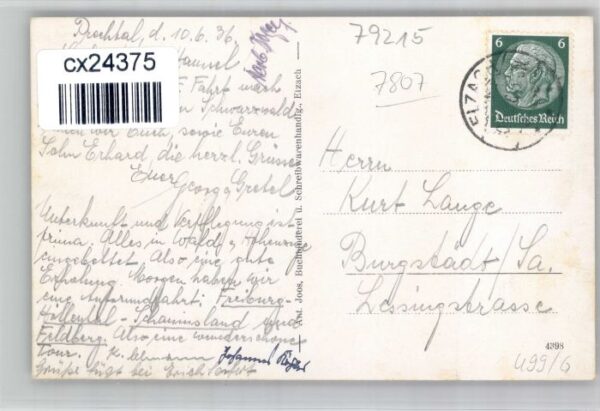 Prechtal, d. 10.6.36.
Hannel
Fahrt nach
Schwarzwalde
wir Euch, sowie Euren
Sohn Erhard, die herzl. Grüsse
Euer
Georg u. Gretel
Unterkunft und Verpflegung ist
prima. Alles in Wald u. Höhenzüge
eingebettet. Also eine gute
Erholung. Morgen haben wir
eine Autorundfahrt: Freiburg-
Höllental-Schauinsland und
Feldberg. Also eine wunderschöne
Tour.
Grüße fügt bei Erich
cx24375
Ant. Joos, Buchbinderei u. Schreibwarenhandlg., Elzach
79215
7807
6 6
Deutsches Reich
ELZACH
Herrn
Kurt Lange
Burgstädt/Sa.
Lessingstrasse
4398
499/6